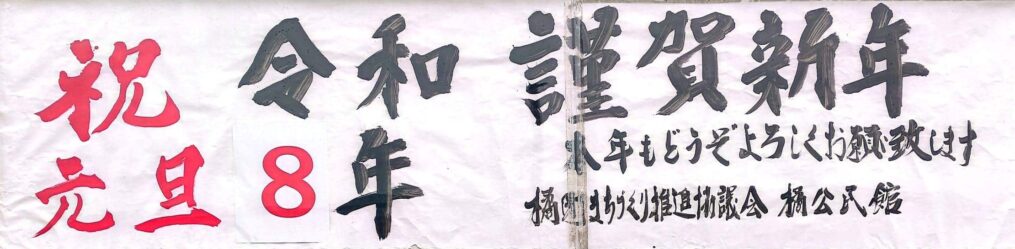 祝
元旦
令和
8年
謹賀新年
年もどうぞよろしくお願い致します
橘 まちづくり推進協議会 橘公民館